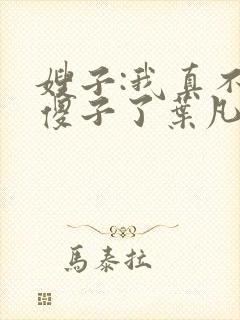 嫂子:我真不
傻子了葉凡
馬泰拉